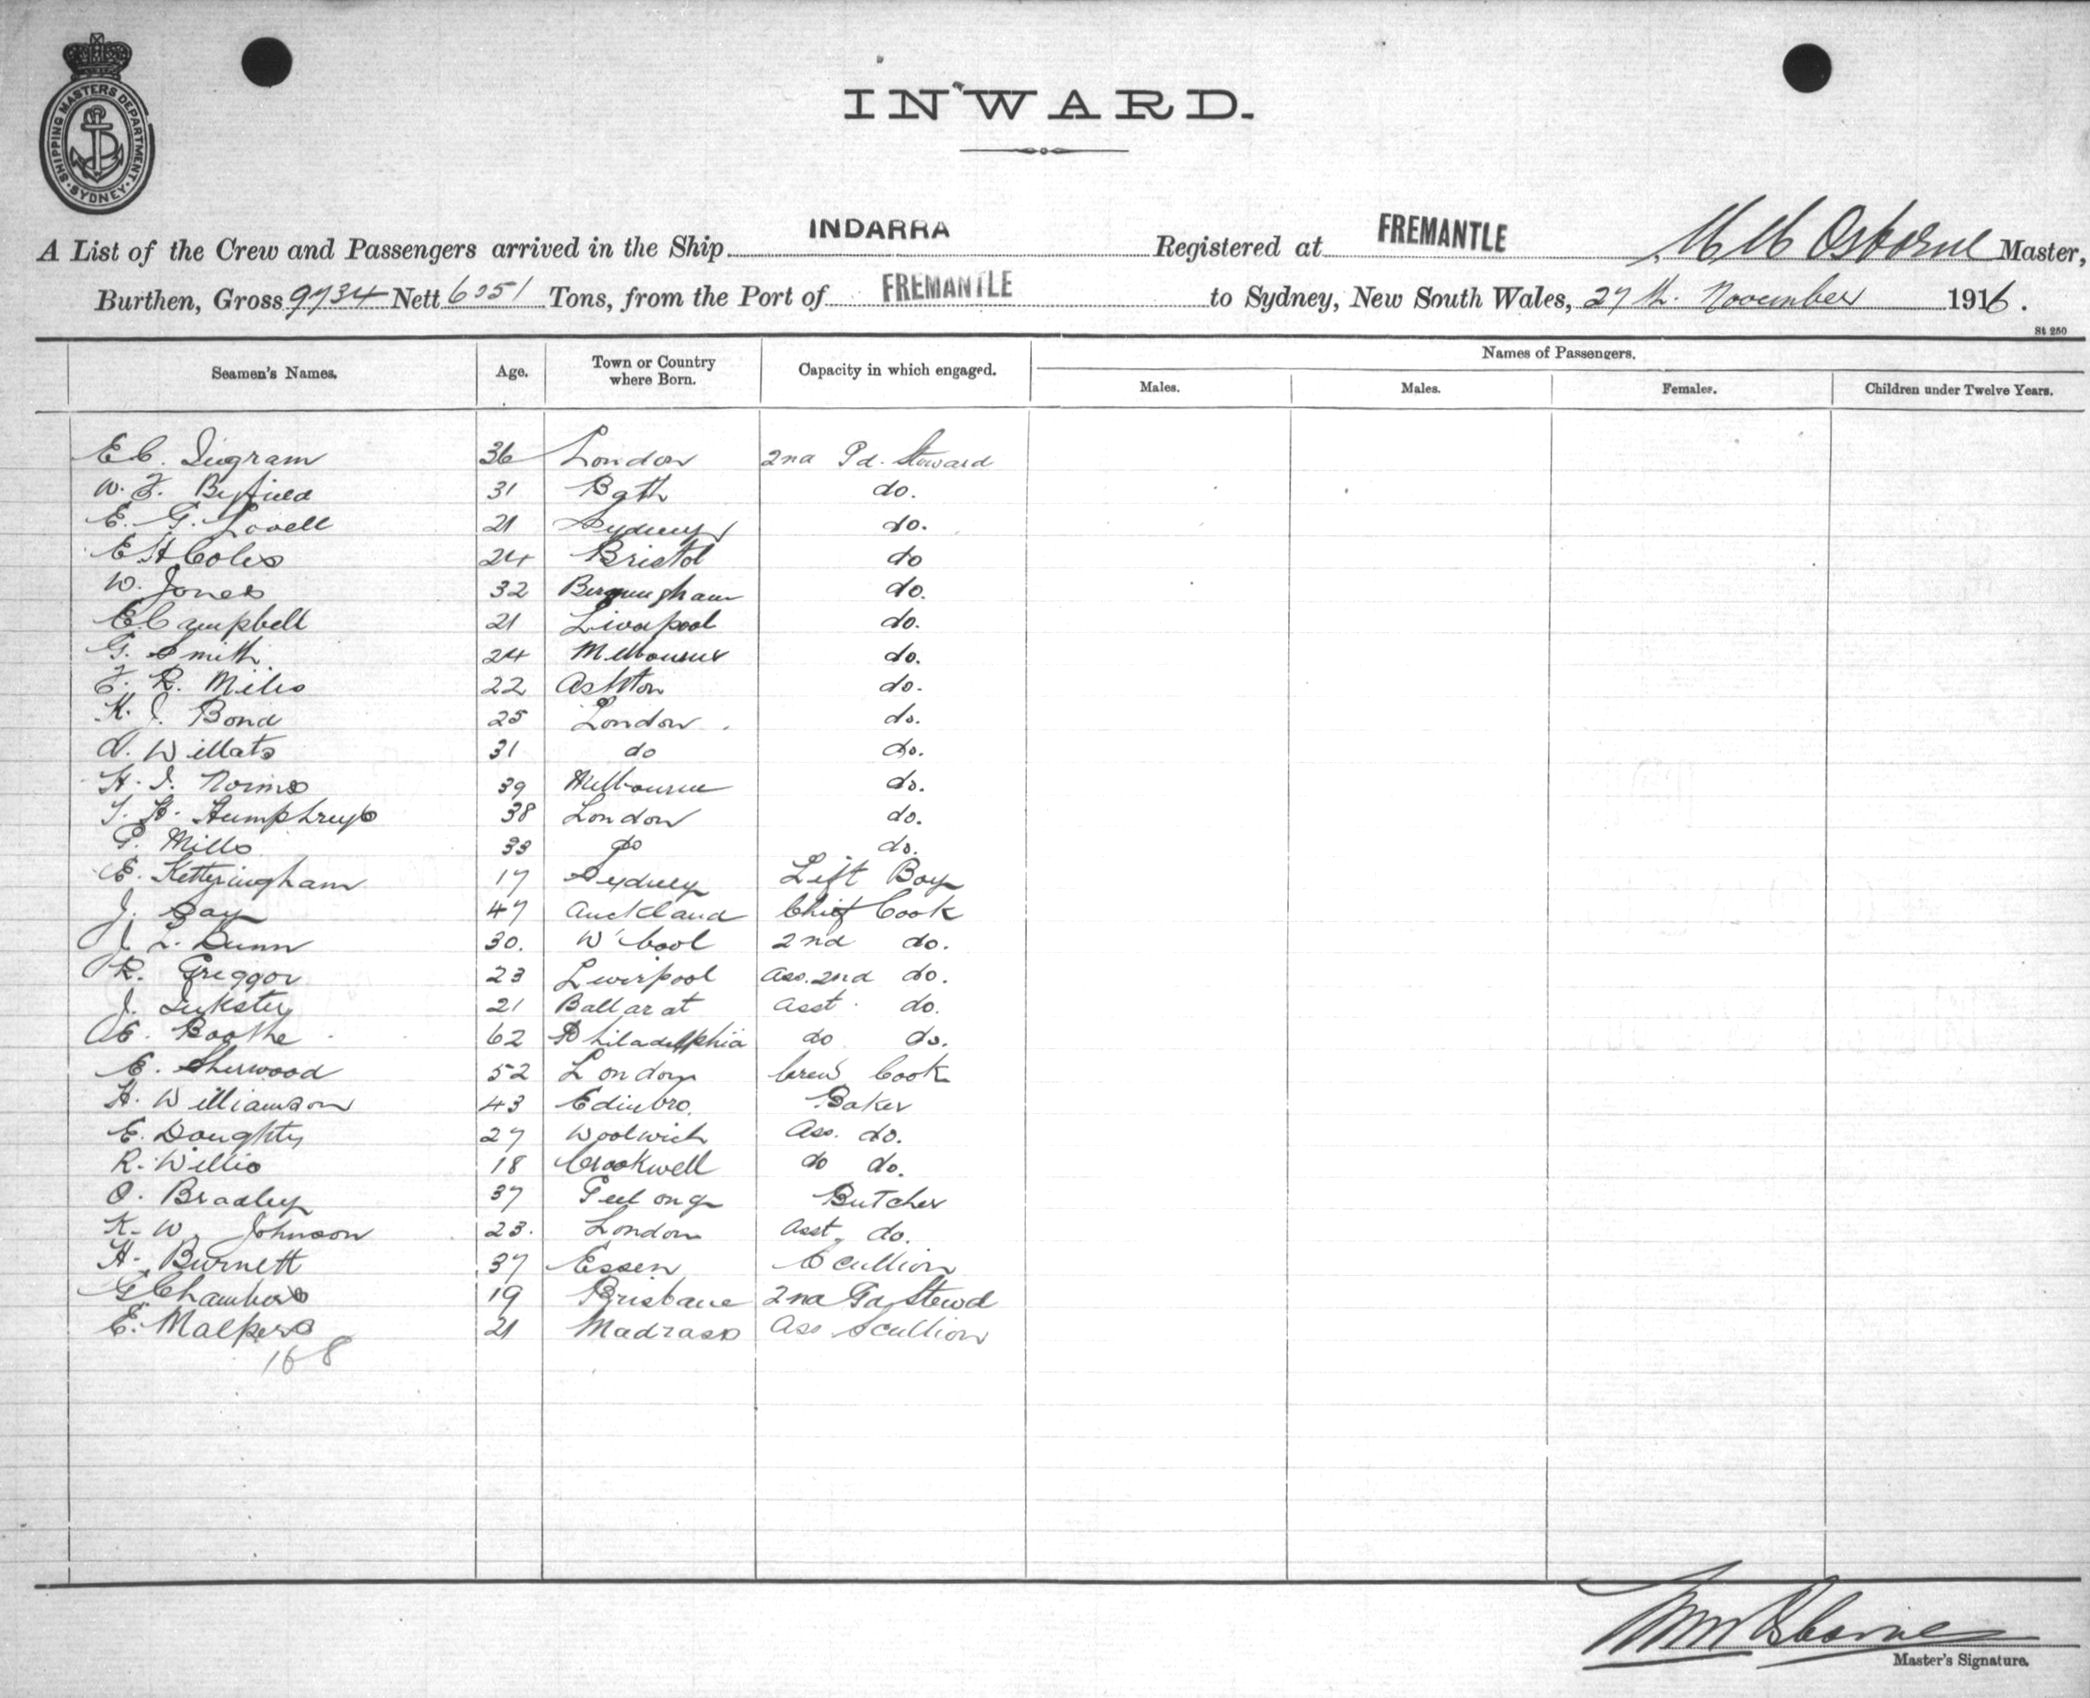 SHIPPING MASTERS DEPARTMENT SYDNEY
INWARD.
A List of the Crew and Passengers arrived in the Ship INDARRA Registered at FREMANTLE, Osborne Master,
Burthen, Gross 9734 Nett 6051 Tons, from the Port of FREMANTLE to Sydney, New South Wales, 27th. November 1916.
St 250
Seamen's Names. Age. Town or Country where Born. Capacity in which engaged. Names of Passengers.
Males. Males. Females. Children under Twelve Years.
E C. Ingram 36 London 2nd Pd. Steward
W. F. Byfield 31 Bath do.
E. G. Lovell 21 Sydney do.
E H Coles 24 Bristol do
W. Jones 32 Birmingham do.
E. Campbell 21 Liverpool do.
G. Smith 24 Melbourne do.
F. R. Miles 22 Ashton do.
K. J. Bond 25 London do.
Willats 31 do do.
H. I. 39 Melbourne do.
T. H. Humphreys 38 London do.
G. Mills 33 do do.
E. Ketteringham 17 Sydney Lift Boy
J. Gay 47 Auckland Chief Cook
J L. Dunn 30. W'bool 2nd do.
R. Greggor 23 Liverpool Ass. 2nd do.
J. 21 Ballarat Asst. do.
E. Boothe 62 Philadelphia do do.
E. Sherwood 52 London Crew Cook
H. Williamson 43 Edinbro. Baker
E. Doughty 27 Woolwich Ass. do.
R. Willis 18 Crookwell do do.
O. Bradley 37 Geelong Butcher
K. W. Johnson 23. London Asst. do.
H. Burnett 37 Essen Scullion
G Chambers 19 Brisbane 2nd Stewd
E. Malpers 21 Madrass Ass Scullion
168
Osborne
Master's Signature.